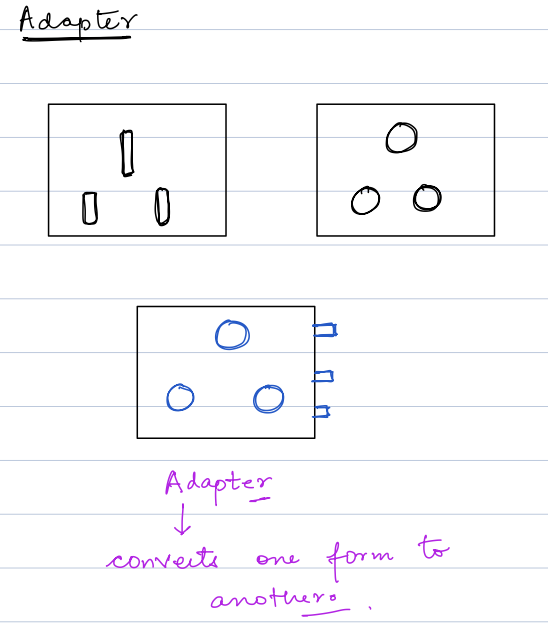 Adapter
Adapter
converts one form to
another.